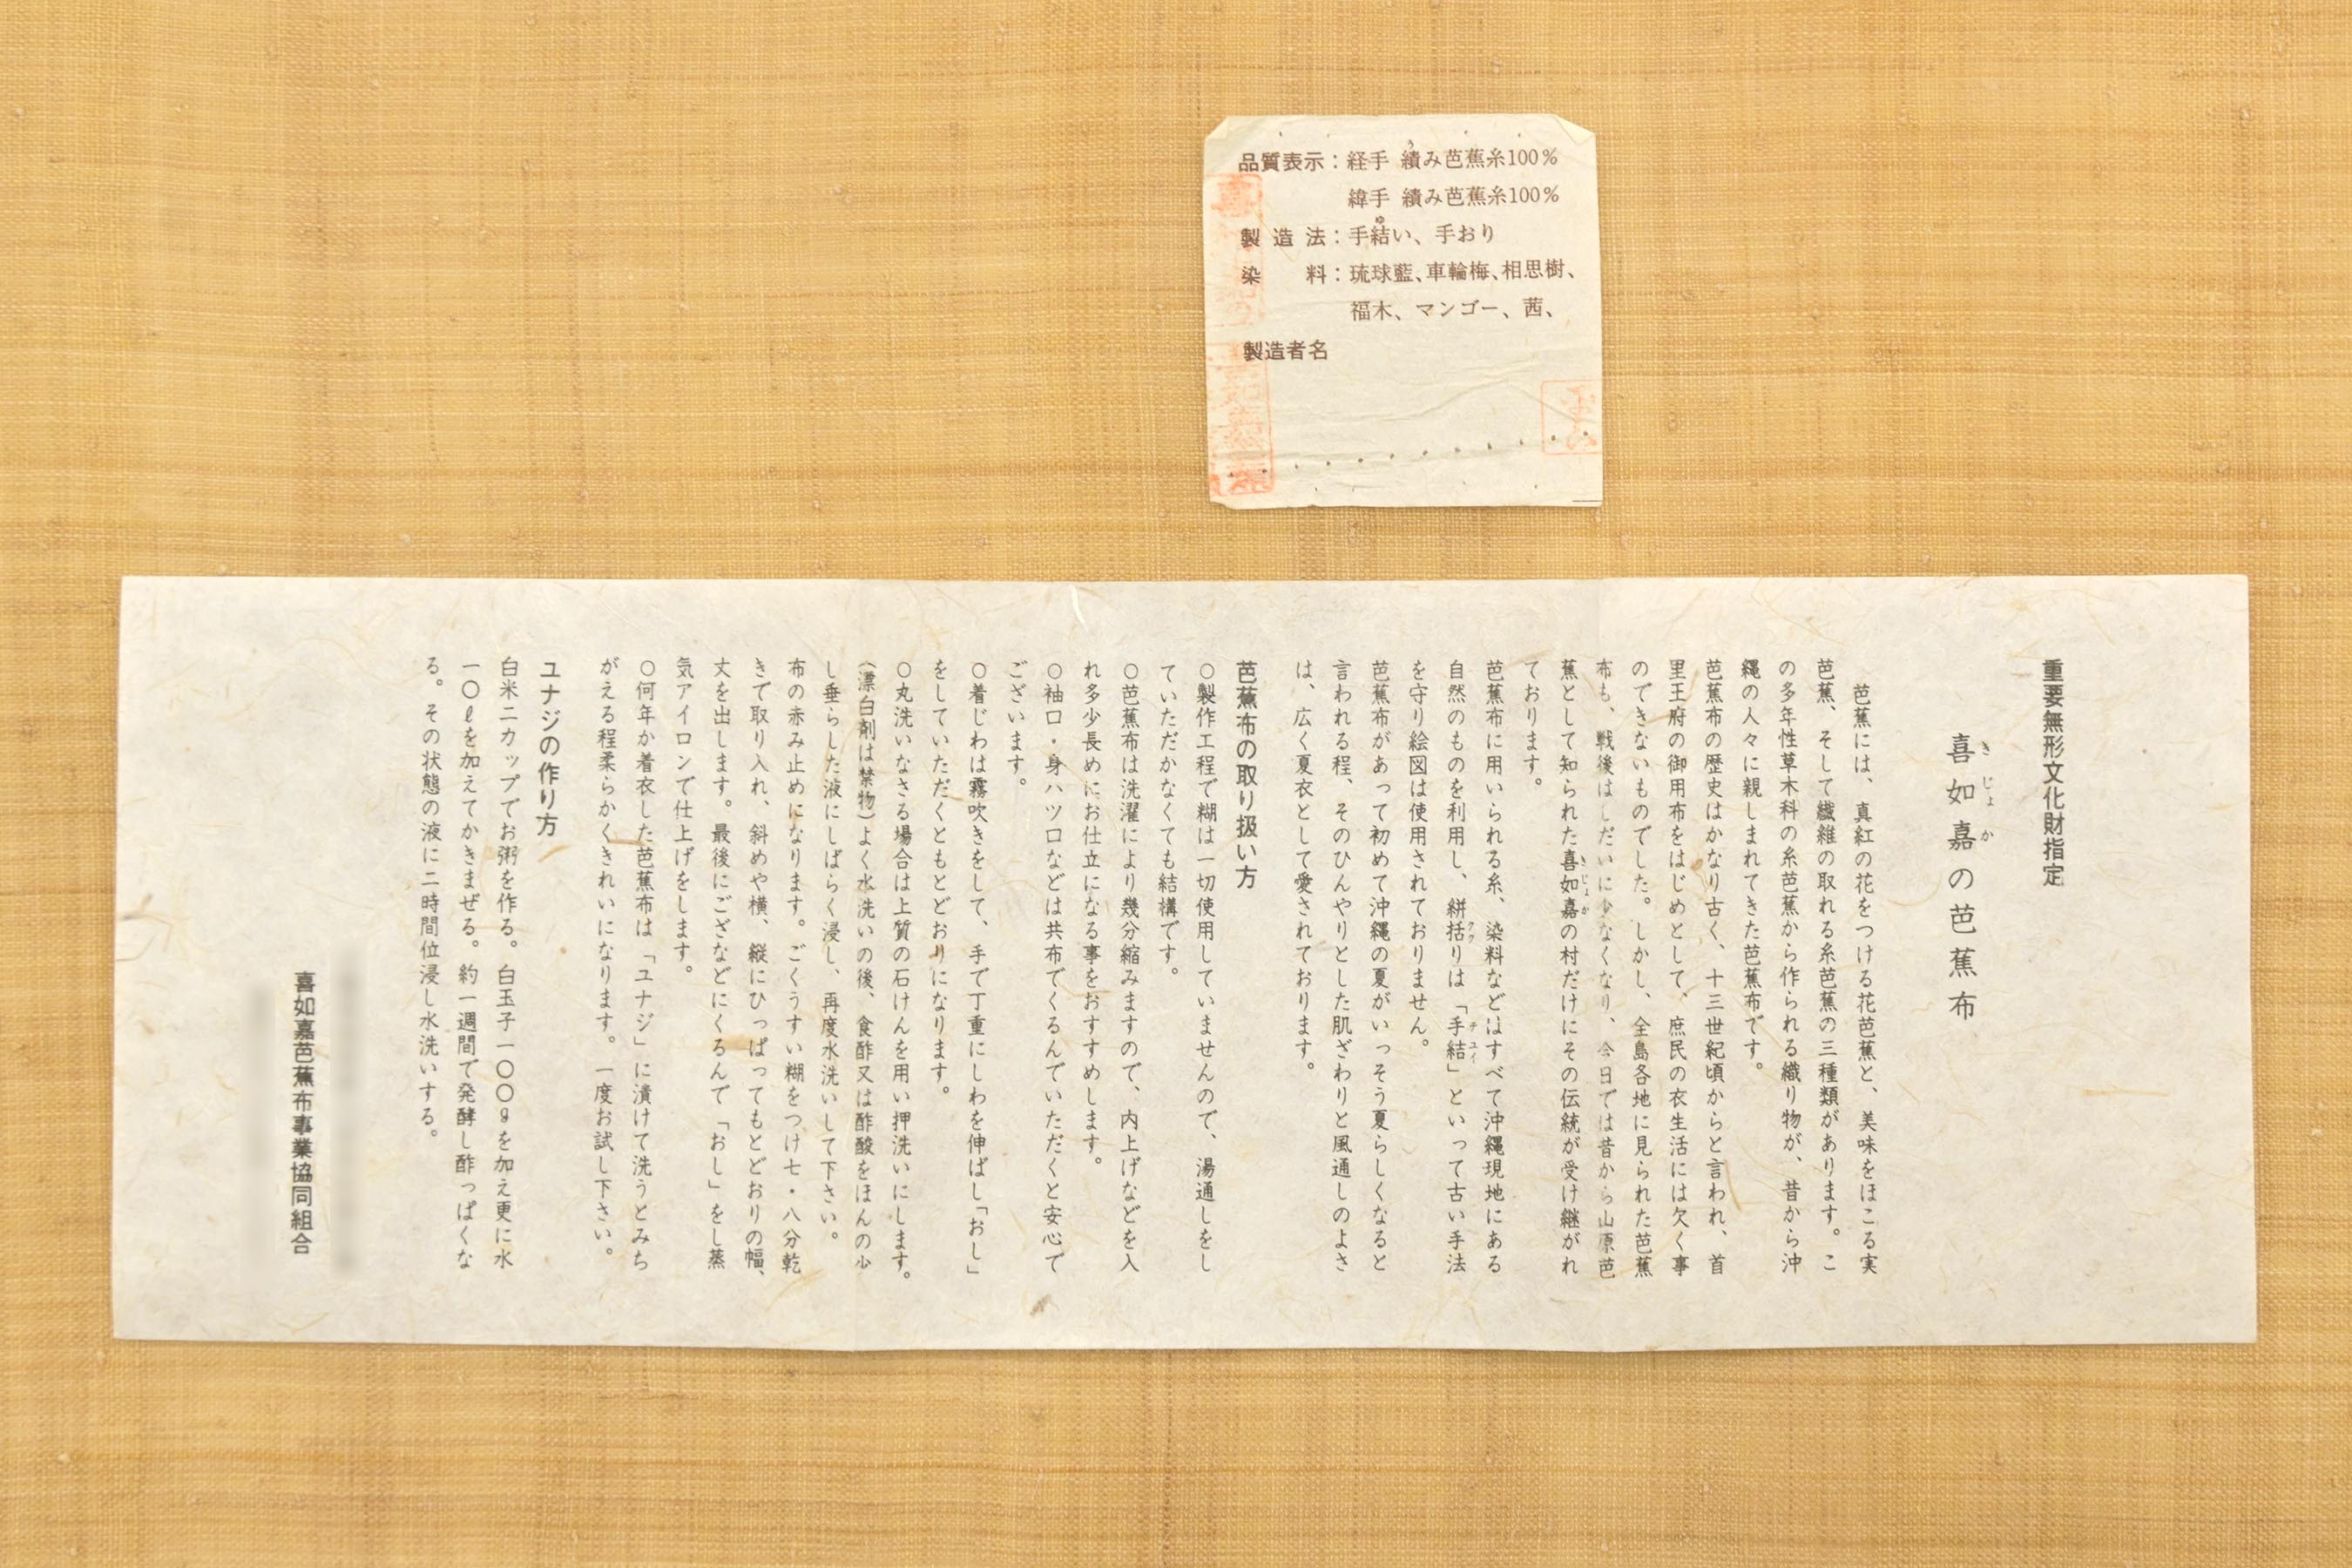 品質表示：経手 績み芭蕉糸100％
緯手 績み芭蕉糸100％
製造法：手結い、手おり
染料：琉球藍、車輪梅、相思樹、
福木、マンゴー、茜、
製造者名
重要無形文化財指定
喜如嘉の芭蕉布
芭蕉には、真紅の花をつける花芭蕉と、美味をほこる実
芭蕉、そして繊維の取れる糸芭蕉の三種類があります。こ
の多年性草木科の糸芭蕉から作られる織り物が、昔から沖
縄の人々に親しまれてきた芭蕉布です。
芭蕉布の歴史はかなり古く、十三世紀頃からと言われ、首
里王府の御用布をはじめとして、庶民の衣生活には欠く事
のできないものでした。しかし、全島各地に見られた芭蕉
布も、戦後はしだいに少なくなり、今日では昔から山原芭
蕉として知られた喜如嘉の村だけにその伝統が受け継がれ
ております。
芭蕉布に用いられる糸、染料などはすべて沖縄現地にある
自然のものを利用し、絣括りは「手結」といって古い手法
を守り絵図は使用されておりません。
芭蕉布があって初めて沖縄の夏がいっそう夏らしくなると
言われる程、そのひんやりとした肌ざわりと風通しのよさ
は、広く夏衣として愛されております。
芭蕉布の取り扱い方
○製作工程で糊は一切使用していませんので、湯通しをし
ていただかなくても結構です。
○芭蕉布は洗濯により幾分縮みますので、内上げなどを入
れ多少長めにお仕立になる事をおすすめします。
○袖口・身ハツ口などは共布でくるんでいただくと安心で
ございます。
○着じわは霧吹きをして、手で丁重にしわを伸ばし「おし」
をしていただくともとどおりになります。
○丸洗いなさる場合は上質の石けんを用い押洗いにします。
（漂白剤は禁物）よく水洗いの後、食酢又は酢酸をほんの少
し垂らした液にしばらく浸し、再度水洗いして下さい。
布の赤み止めになります。ごくうすい糊をつけ七・八分乾
きで取り入れ、斜めや横、縦にひっぱってもとどおりの幅、
丈を出します。最後にござなどにくるんで「おし」をし蒸
気アイロンで仕上げをします。
○何年か着衣した芭蕉布は「ユナジ」に漬けて洗うとみち
がえる程柔らかくきれいになります。一度お試し下さい。
ユナジの作り方
白米二カップでお粥を作る。白玉子一〇〇gを加え更に水
一〇ℓを加えてかきまぜる。約一週間で発酵し酢っぱくな
る。その状態の液に二時間位浸し水洗いする。
喜如嘉芭蕉布事業協同組合